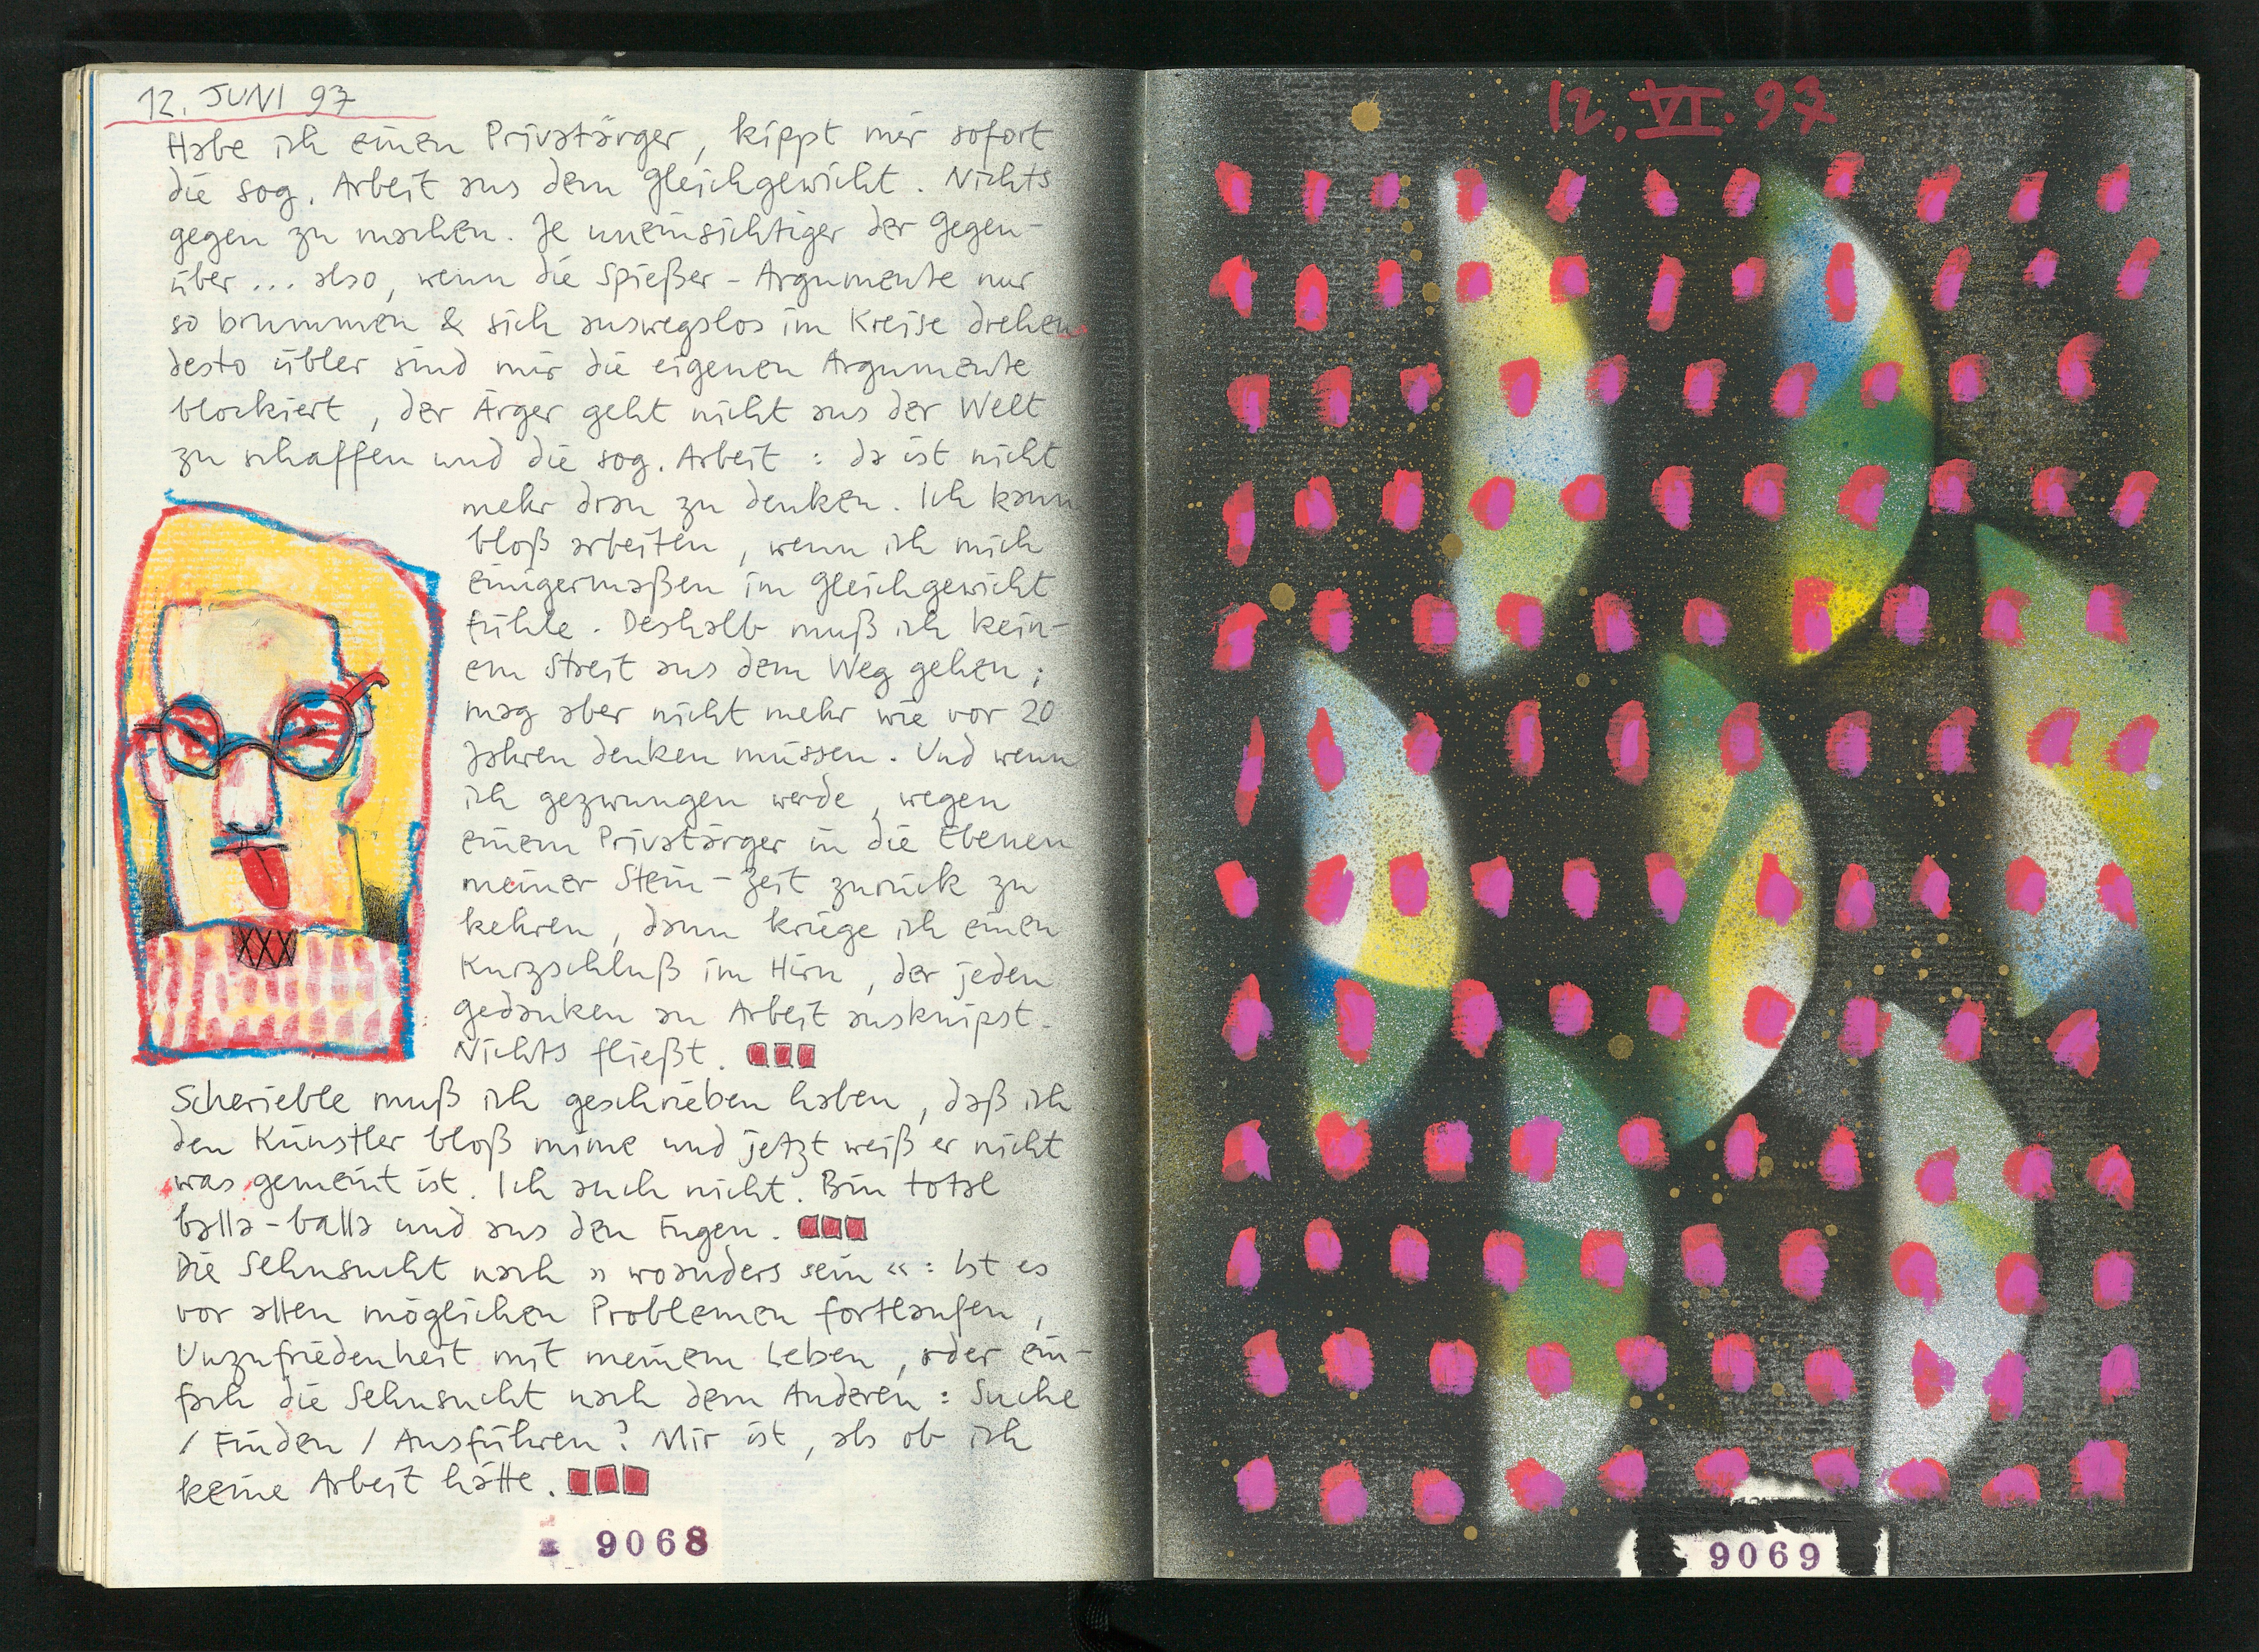 12. JUNI 97
Habe ich einen Privatärger, kippt mir sofort
die sog. Arbeit aus dem Gleichgewicht. Nichts
gegen zu machen. Je uneinsichtiger der Gegen-
über... also, wenn die Spießer-Argumente nur
so brummen & sich auswegslos im Kreise drehen
desto übler sind mir die eigenen Argumente
blockiert, der Ärger geht nicht aus der Welt
zu schaffen und die sog. Arbeit: da ist nicht
mehr dran zu denken. Ich kann
bloß arbeiten, wenn ich mich
einigermaßen im Gleichgewicht
fühle. Deshalb muß ich kein-
em Streit aus dem Weg gehen;
mag aber nicht mehr wie vor 20
Jahren denken müssen. Und wenn
ich gezwungen werde, wegen
einem Privatärger in die Ebenen
meiner Stein-Zeit zurück zu
kehren, dann kriege ich einen
Kurzschluß im Hirn, der jeden
Gedanken an Arbeit ausknipst.
Nichts fließt.
Scherieble muß ich geschrieben haben, daß ich
den Künstler bloß mime und jetzt weiß er nicht
was gemeint ist. Ich auch nicht. Bin total
balla-balla und aus den Fugen.
Die Sehnsucht nach »woanders sein«: Ist es
vor allen möglichen Problemen fortlaufen,
Unzufriedenheit mit meinem Leben, oder ein-
fach die Sehnsucht nach dem Anderen: Suche
/ Finden / Ausführen? Mir ist, als ob ich
keine Arbeit hätte.
9068
12. VI. 97
9069